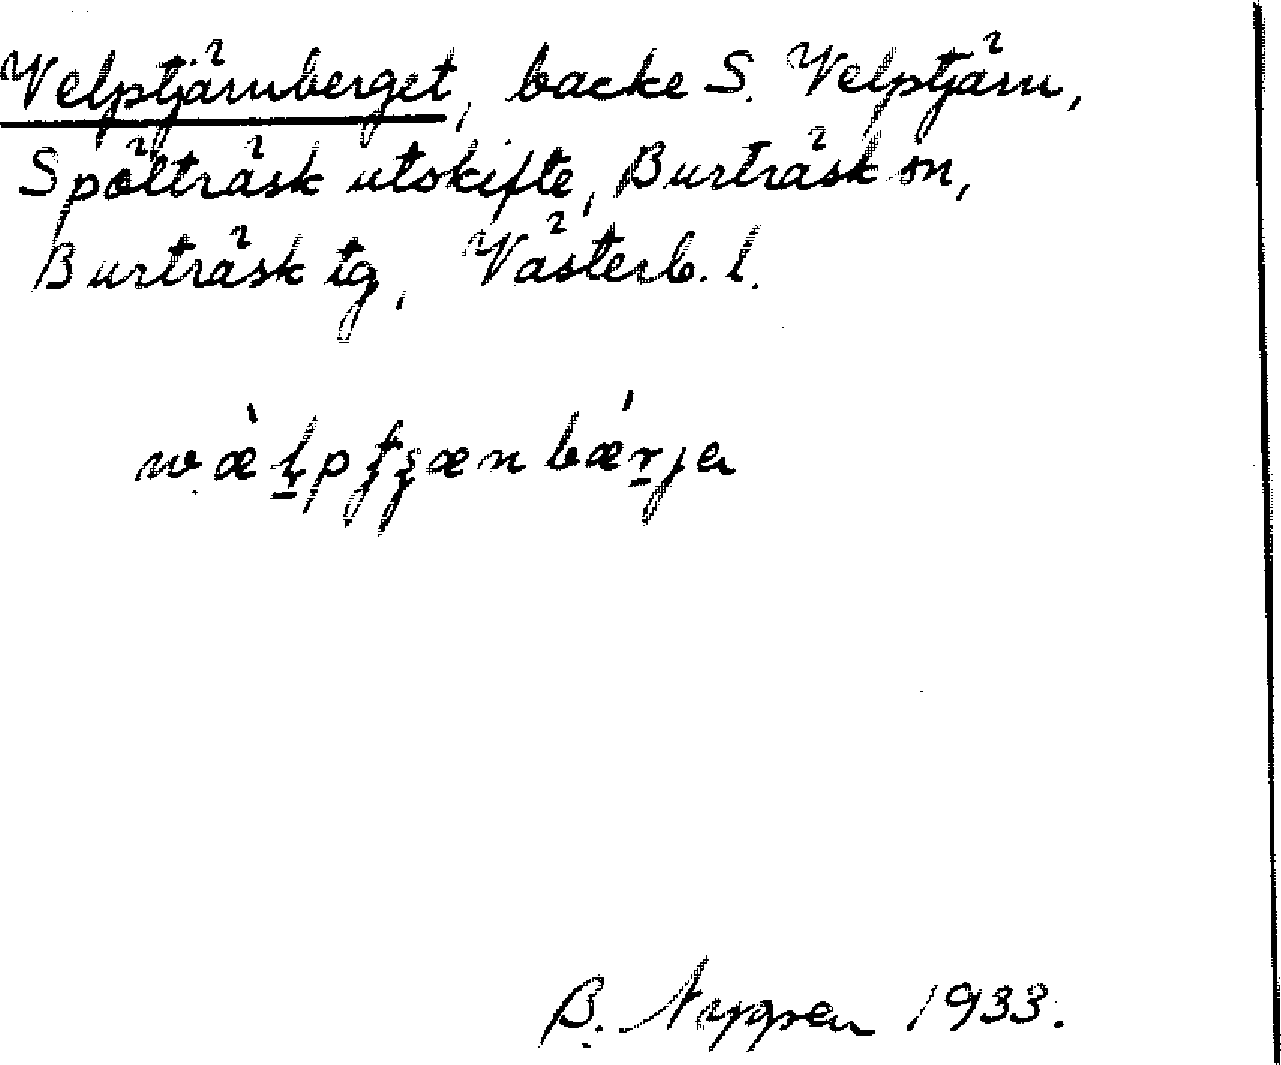 Velptjärnberget, backe S. Velptjärn,
Spölträsk utskifte, Burträsk sn,
Burträsk tg, Västerb. l.
wæ̀l̠ptʒænbǽr̠ja
B. Nygren 1933.